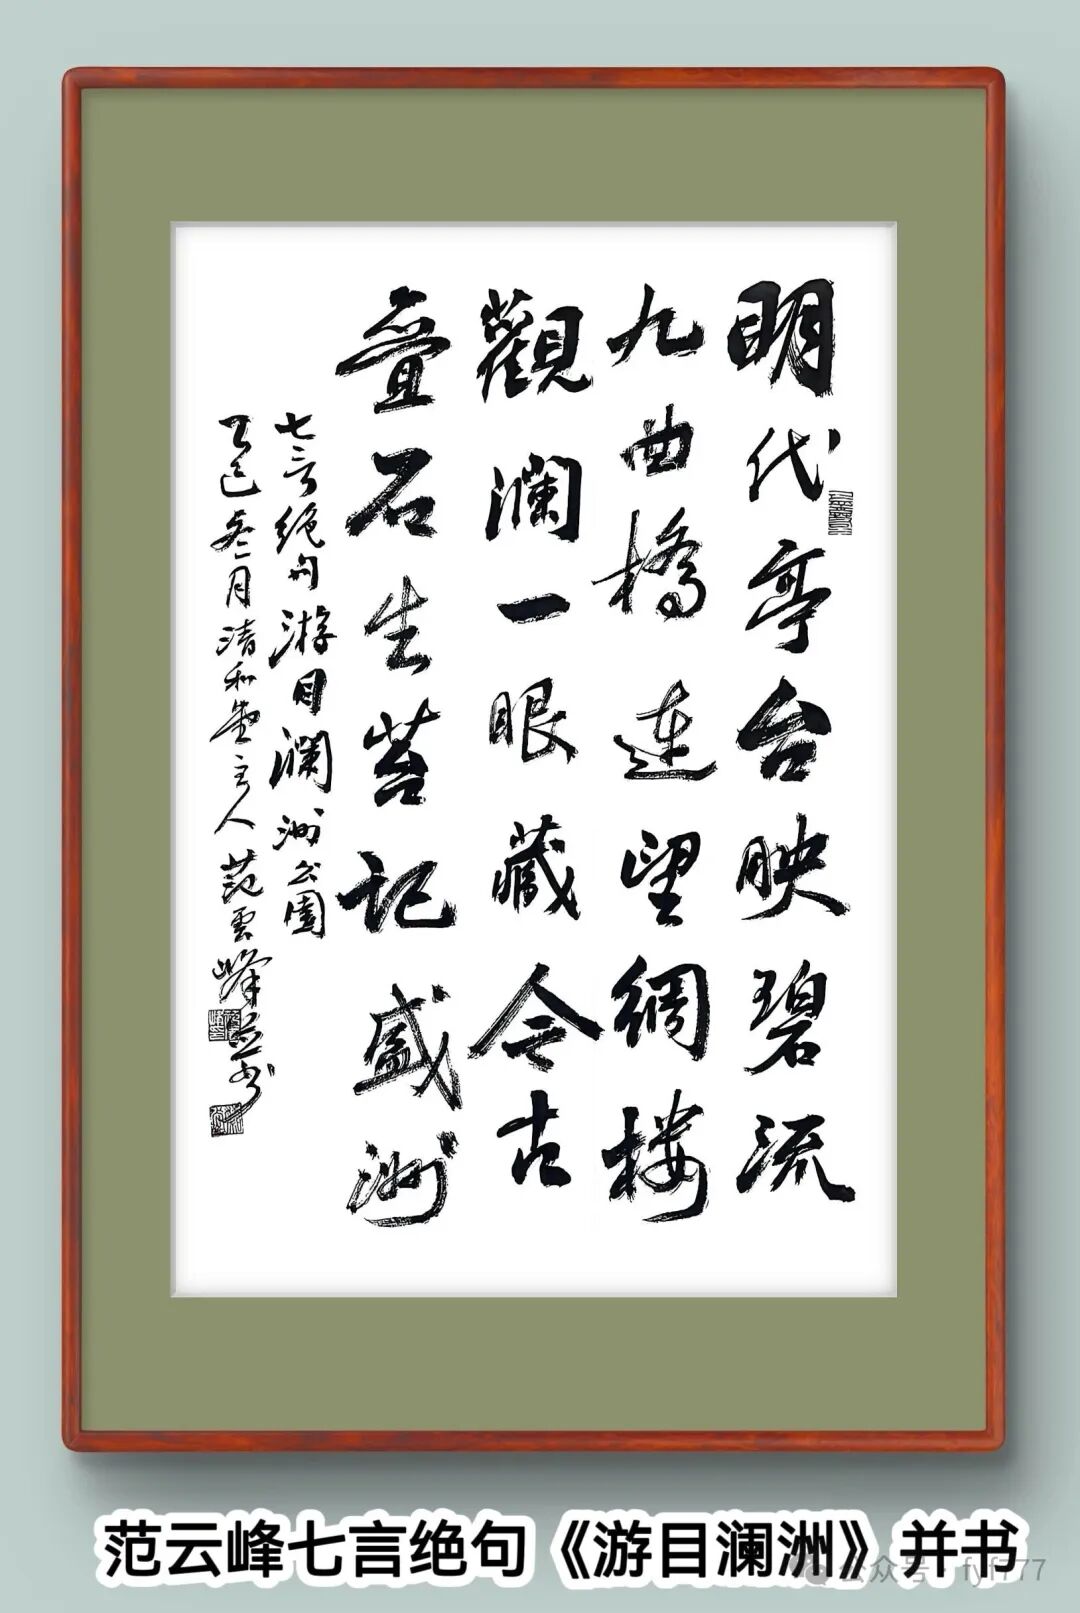 明代亭台映碧流
九曲橋連望綢樓
觀澜一眼藏今古
叠石生苔记盛洲
七言绝句游目澜洲公園
乙巳叁月清和堂主人范雲峰并书
范云峰七言绝句《游目澜洲》并书
公众号·fyf777